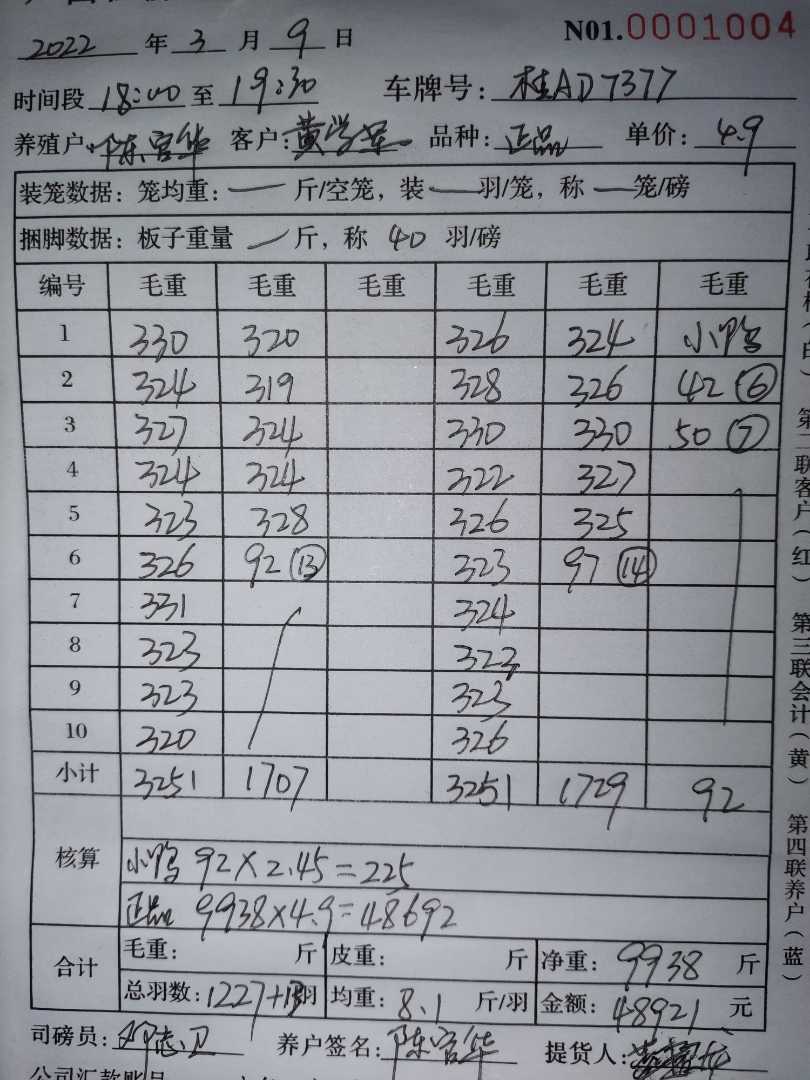 2022 年 3 月 9 日 N01.0001004
时间段 18:00 至 19:30 车牌号: 桂AD7377
养殖户: 陈官华 客户: 黄学军 品种: 正品 单价: 4.9
装笼数据: 笼均重: — 斤/空笼, 装 — 羽/笼, 称 — 笼/磅
捆脚数据: 板子重量 — 斤, 称 40 羽/磅
编号 毛重 毛重 毛重 毛重 毛重 毛重
1 330 320 326 324 小鸭
2 324 319 328 326 42 ⑥
3 327 324 330 330 50 ⑦
4 324 324 322 327
5 323 328 326 325
6 326 92 ⑬ 323 97 ⑭
7 331 324
8 323 323
9 323 323
10 320 326
小计 3251 1707 3251 1729 92
核算
小鸭 92×2.45=225
正品 9938×4.9=48692
合计
毛重: 斤 皮重: 斤 净重: 9938 斤
总羽数: 1227+13羽 均重: 8.1 斤/羽 金额: 48921 元
司磅员: 邓志卫 养户签名: 陈官华 提货人:
公司汇款账号
(白) 第二联客户(红) 第三联会计(黄) 第四联养户(蓝)